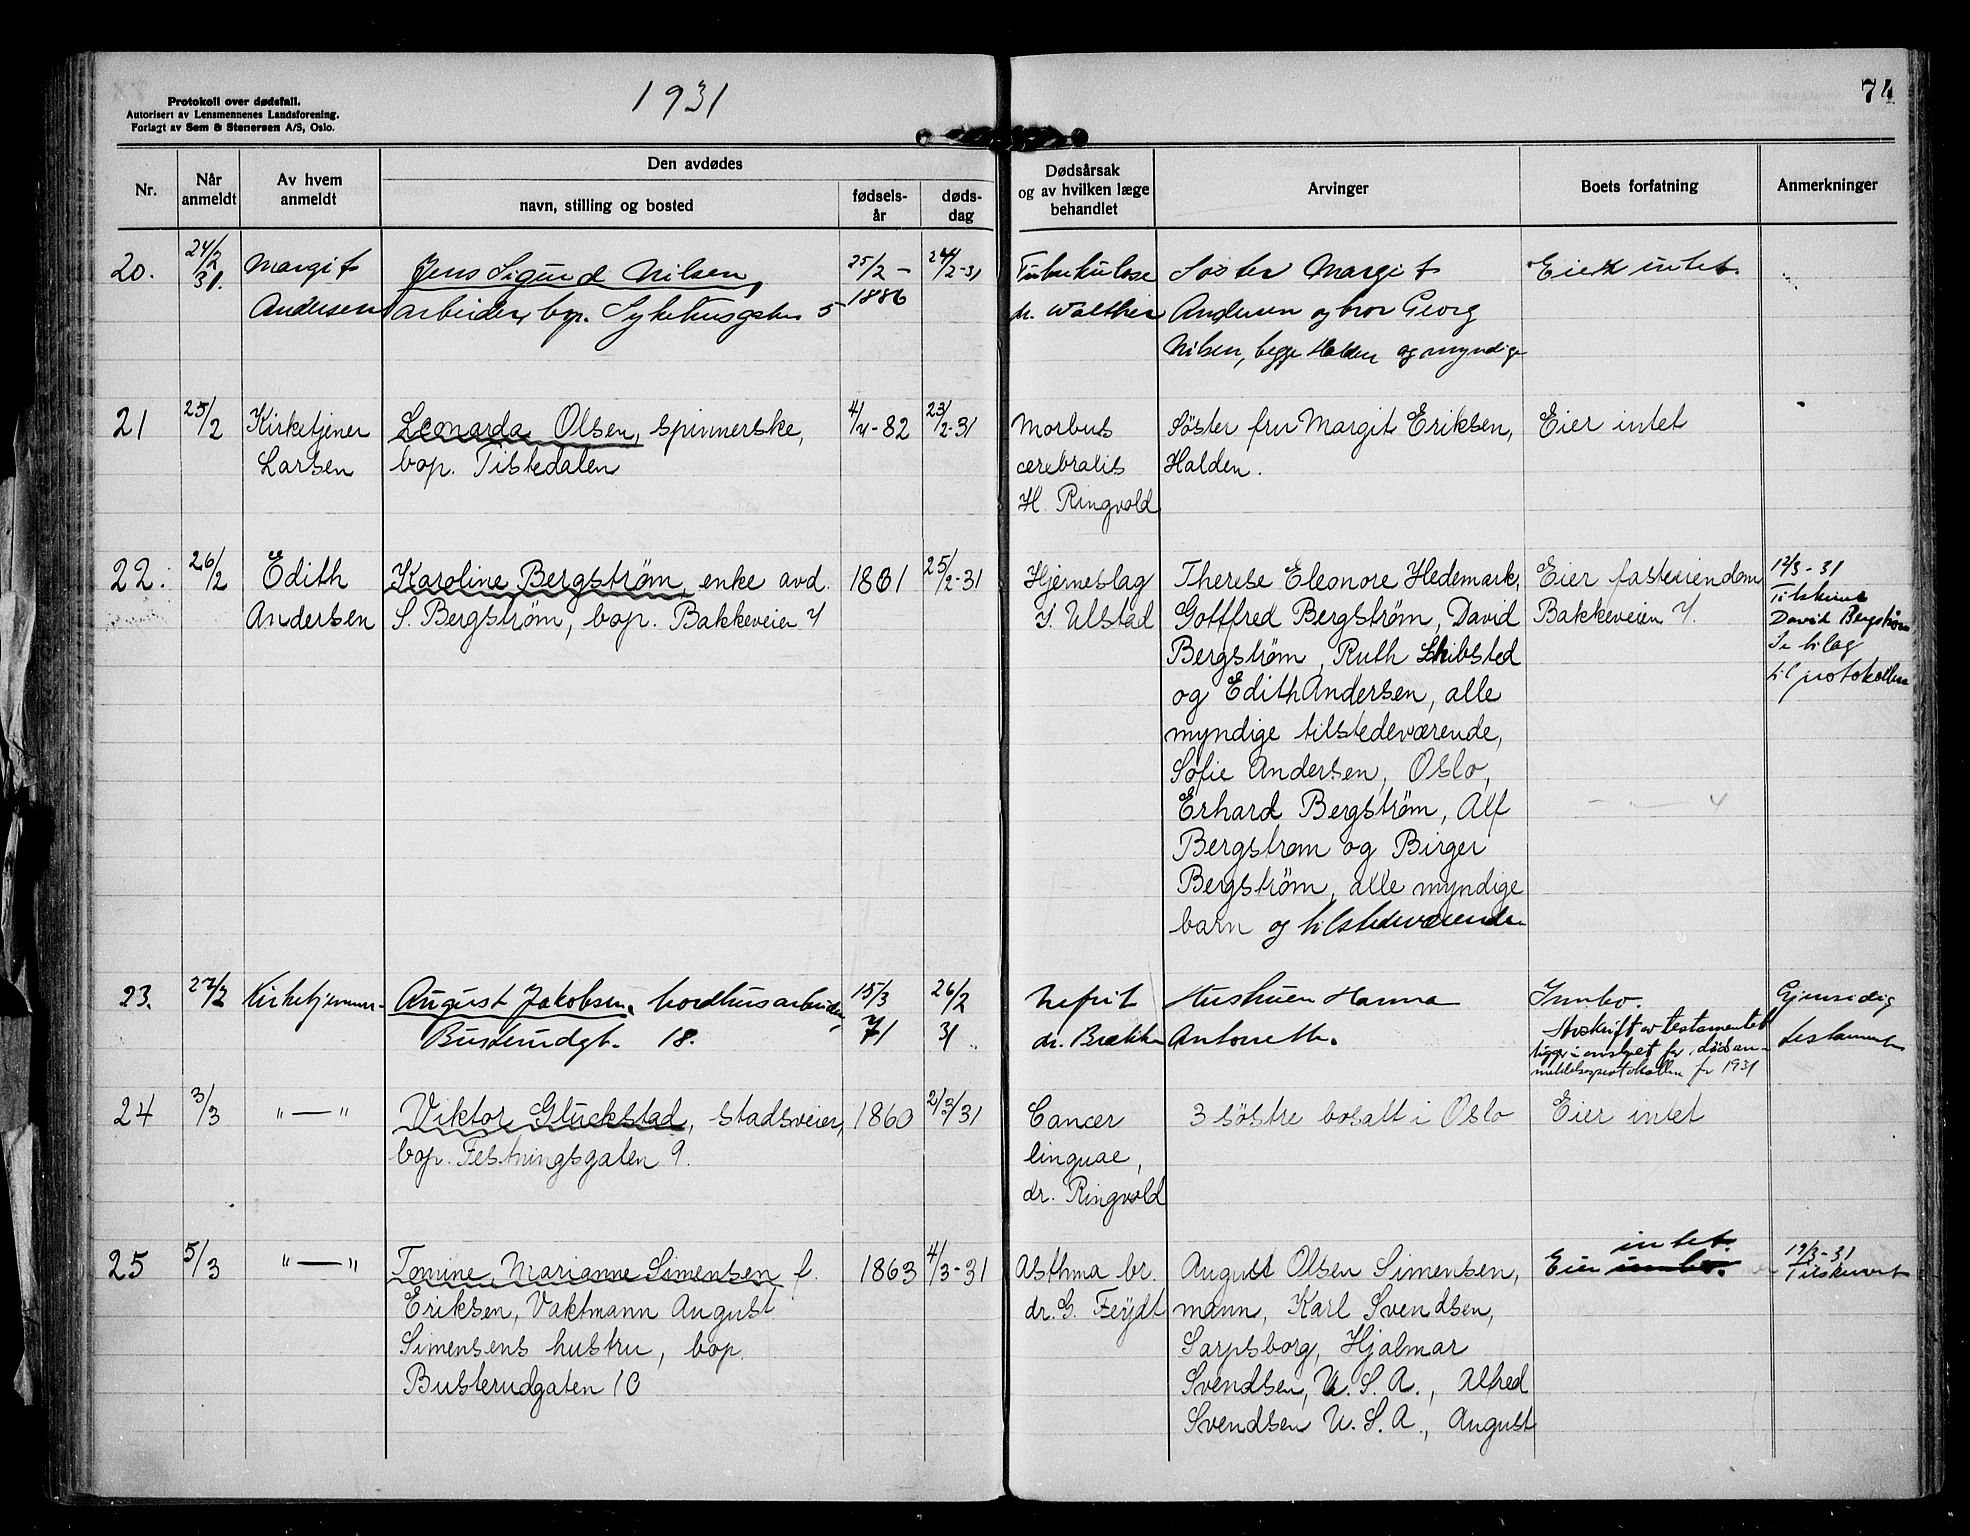 Protokoll over dødsfall.
Autorisert av Lensmennenes Landsforening.
Forlagt av Sem & Stenersen A/S, Oslo.
1931
74
Nr.
Når anmeldt
Av hvem anmeldt
Den avdødes
navn, stilling og bosted
fødsels-
år
døds-
dag
Dødsårsak
og av hvilken læge
behandlet
Arvinger
Boets forfatning
Anmerkninger
20. 24/2 31. Margit
Andersen
Jens Sigurd Nilsen,
arbeider, bop. Sykehusgaten 5
25/2 -
1886
24/2-31
Tuberkulose
dr. Walther
Søster Margit
Andersen og bror Georg
Nilsen, begge Halden og myndige
Eier intet
21 25/2 Kirketjener
Larsen
Leonarda Olsen, spinnerske,
bop. Tistedalen
4/4-82
23/2-31
Morbus
cerebralis
H. Ringvold
Søster fru Margit Eriksen,
Halden.
Eier intet
22. 26/2 Edith
Andersen
Karoline Bergström, enke avd.
S. Bergström, bop. Bakkeveien 4
1861
25/2-31
Hjerneslag
J. Ulstad
Therese Eleonore Hedemark,
Gottfred Bergström, David
Bergström, Ruth Schibsted
og Edith Andersen, alle
myndige tilstedeværende,
Sofie Andersen, Oslo,
Erhard Bergström, Alf
Bergstrøm og Birger
Bergström, alle myndige
barn og tilstedeværende
Eier fasteiendom
Bakkeveien 4.
12/3-31
Tilskrevet
David Bergström
Se bilag
til protokollen
23. 27/2 Kirketjeneren
August Jakobsen, bordhusarbeider,
Busterudgt. 18.
15/3
71
26/2
31
Nefrit
dr. Brekke
Hustruen Hanna
Antonette.
Innbo.
Avskrift av testamentet
ligger i omslaget for dødsan-
meldelsesprotokollen for 1931
Gjensidig
testamente
24 3/3 "—"
Viktor Gluckstad, stadsveier,
bop. Festningsgaten 9.
1860
2/3/31
Cancer
linguae,
dr. Ringvold
3 söstre bosatt i Oslo
Eier intet
25 5/3 "—"
Tomine Marianne Simensen f.
Eriksen, Vaktmann August
Simensens hustru, bop.
Busterudgaten 10
1863
4/3-31
Asthma br.
dr. G. Feydt
August Olsen Simensen,
mann, Karl Svendsen,
Sarpsborg, Hjalmar
Svendsen, U.S.A., Alfred
Svendsen U.S.A., August
intet.
Eier innbo.
19/3-31
Tilskrevet